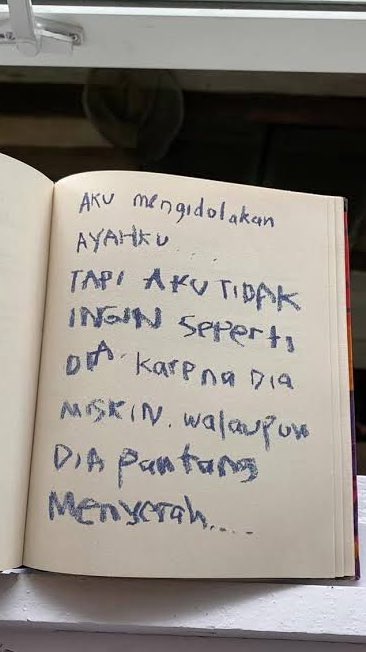 AKU mengidolakan
AYAHKU ....
TAPI AKU TIDAK
INGIN seperti
DIA. karena DIA
MISKIN. walaupun
DIA pantang
Menyerah....